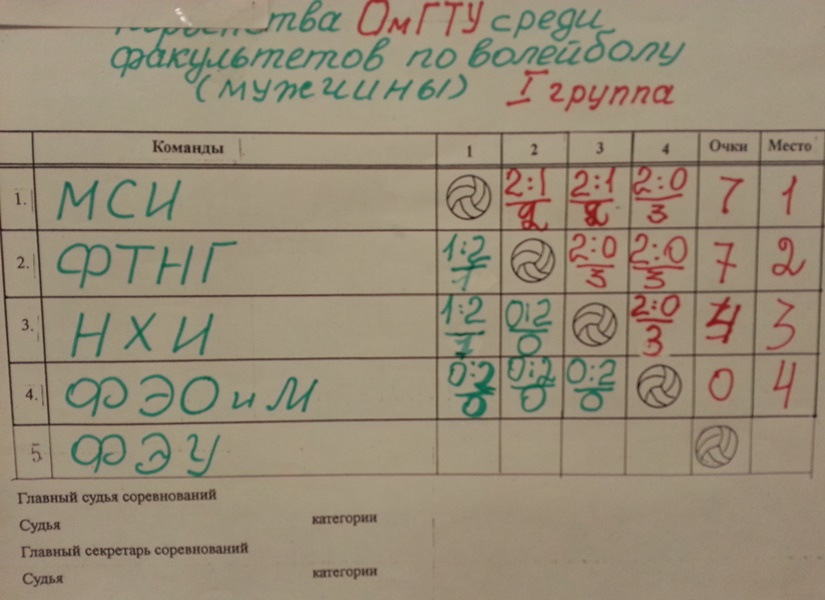 ОмГТУ среди
факультетов по волейболу
(мужчины) I группа
Команды 1 2 3 4 Очки Место
1. МСИ 2:1/2 2:1/2 2:0/3 7 1
2. ФТНГ 1:2/1 2:0/3 2:0/3 7 2
3. НХИ 1:2/1 0:2/0 2:0/3 4 3
4. ФЭОиМ 0:2/0 0:2/0 0:2/0 0 4
5 ФЭУ
Главный судья соревнований
Судья категории
Главный секретарь соревнований
Судья категории